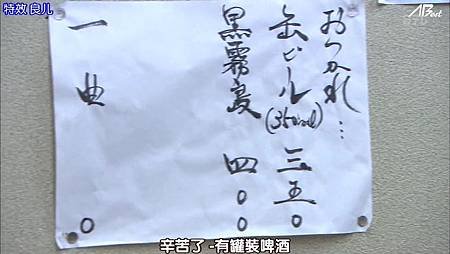 特效 良儿
ABest
おつかれ…
缶ビール(350ml) 三五0
黒霧島 四00
一曲 0
辛苦了 -有罐裝啤酒